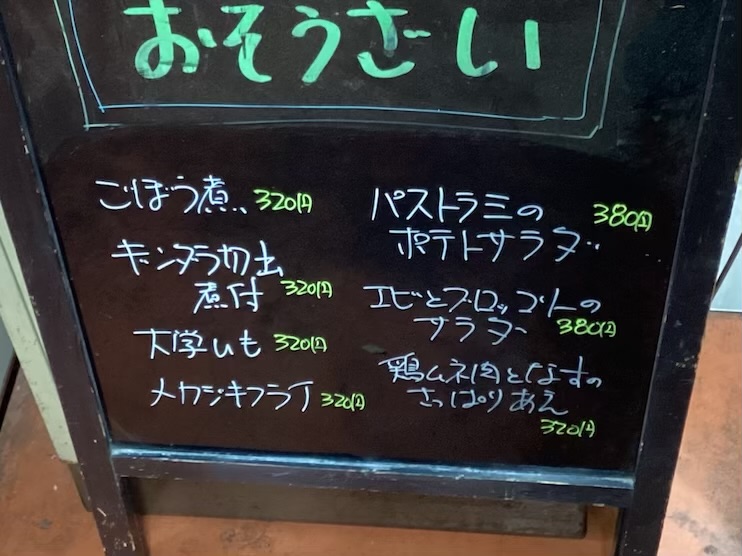 おそうざい
ごぼう煮 320円
ギンダラ切出
煮付 320円
大学いも 320円
メカジキフライ 320円
パストラミの 380円
ポテトサラダ
エビとブロッコリーの
サラダ 380円
鶏ムネ肉となすの
さっぱりあえ
320円